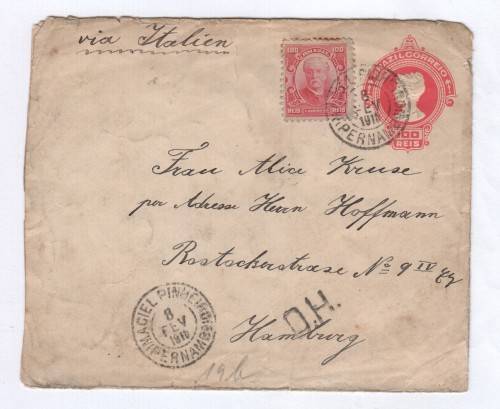 via Italien
100 100
REIS REIS
BRAZIL CORREIO
REIS
8
FEV
(PERNAMB
Frau Alice Kruse
per Adresse Herrn Hoffmann
Rostockerstrasse No 9 IV
Hamburg
MACIEL PINHEIRO
8
FEV
(PERNAMB
D.H.